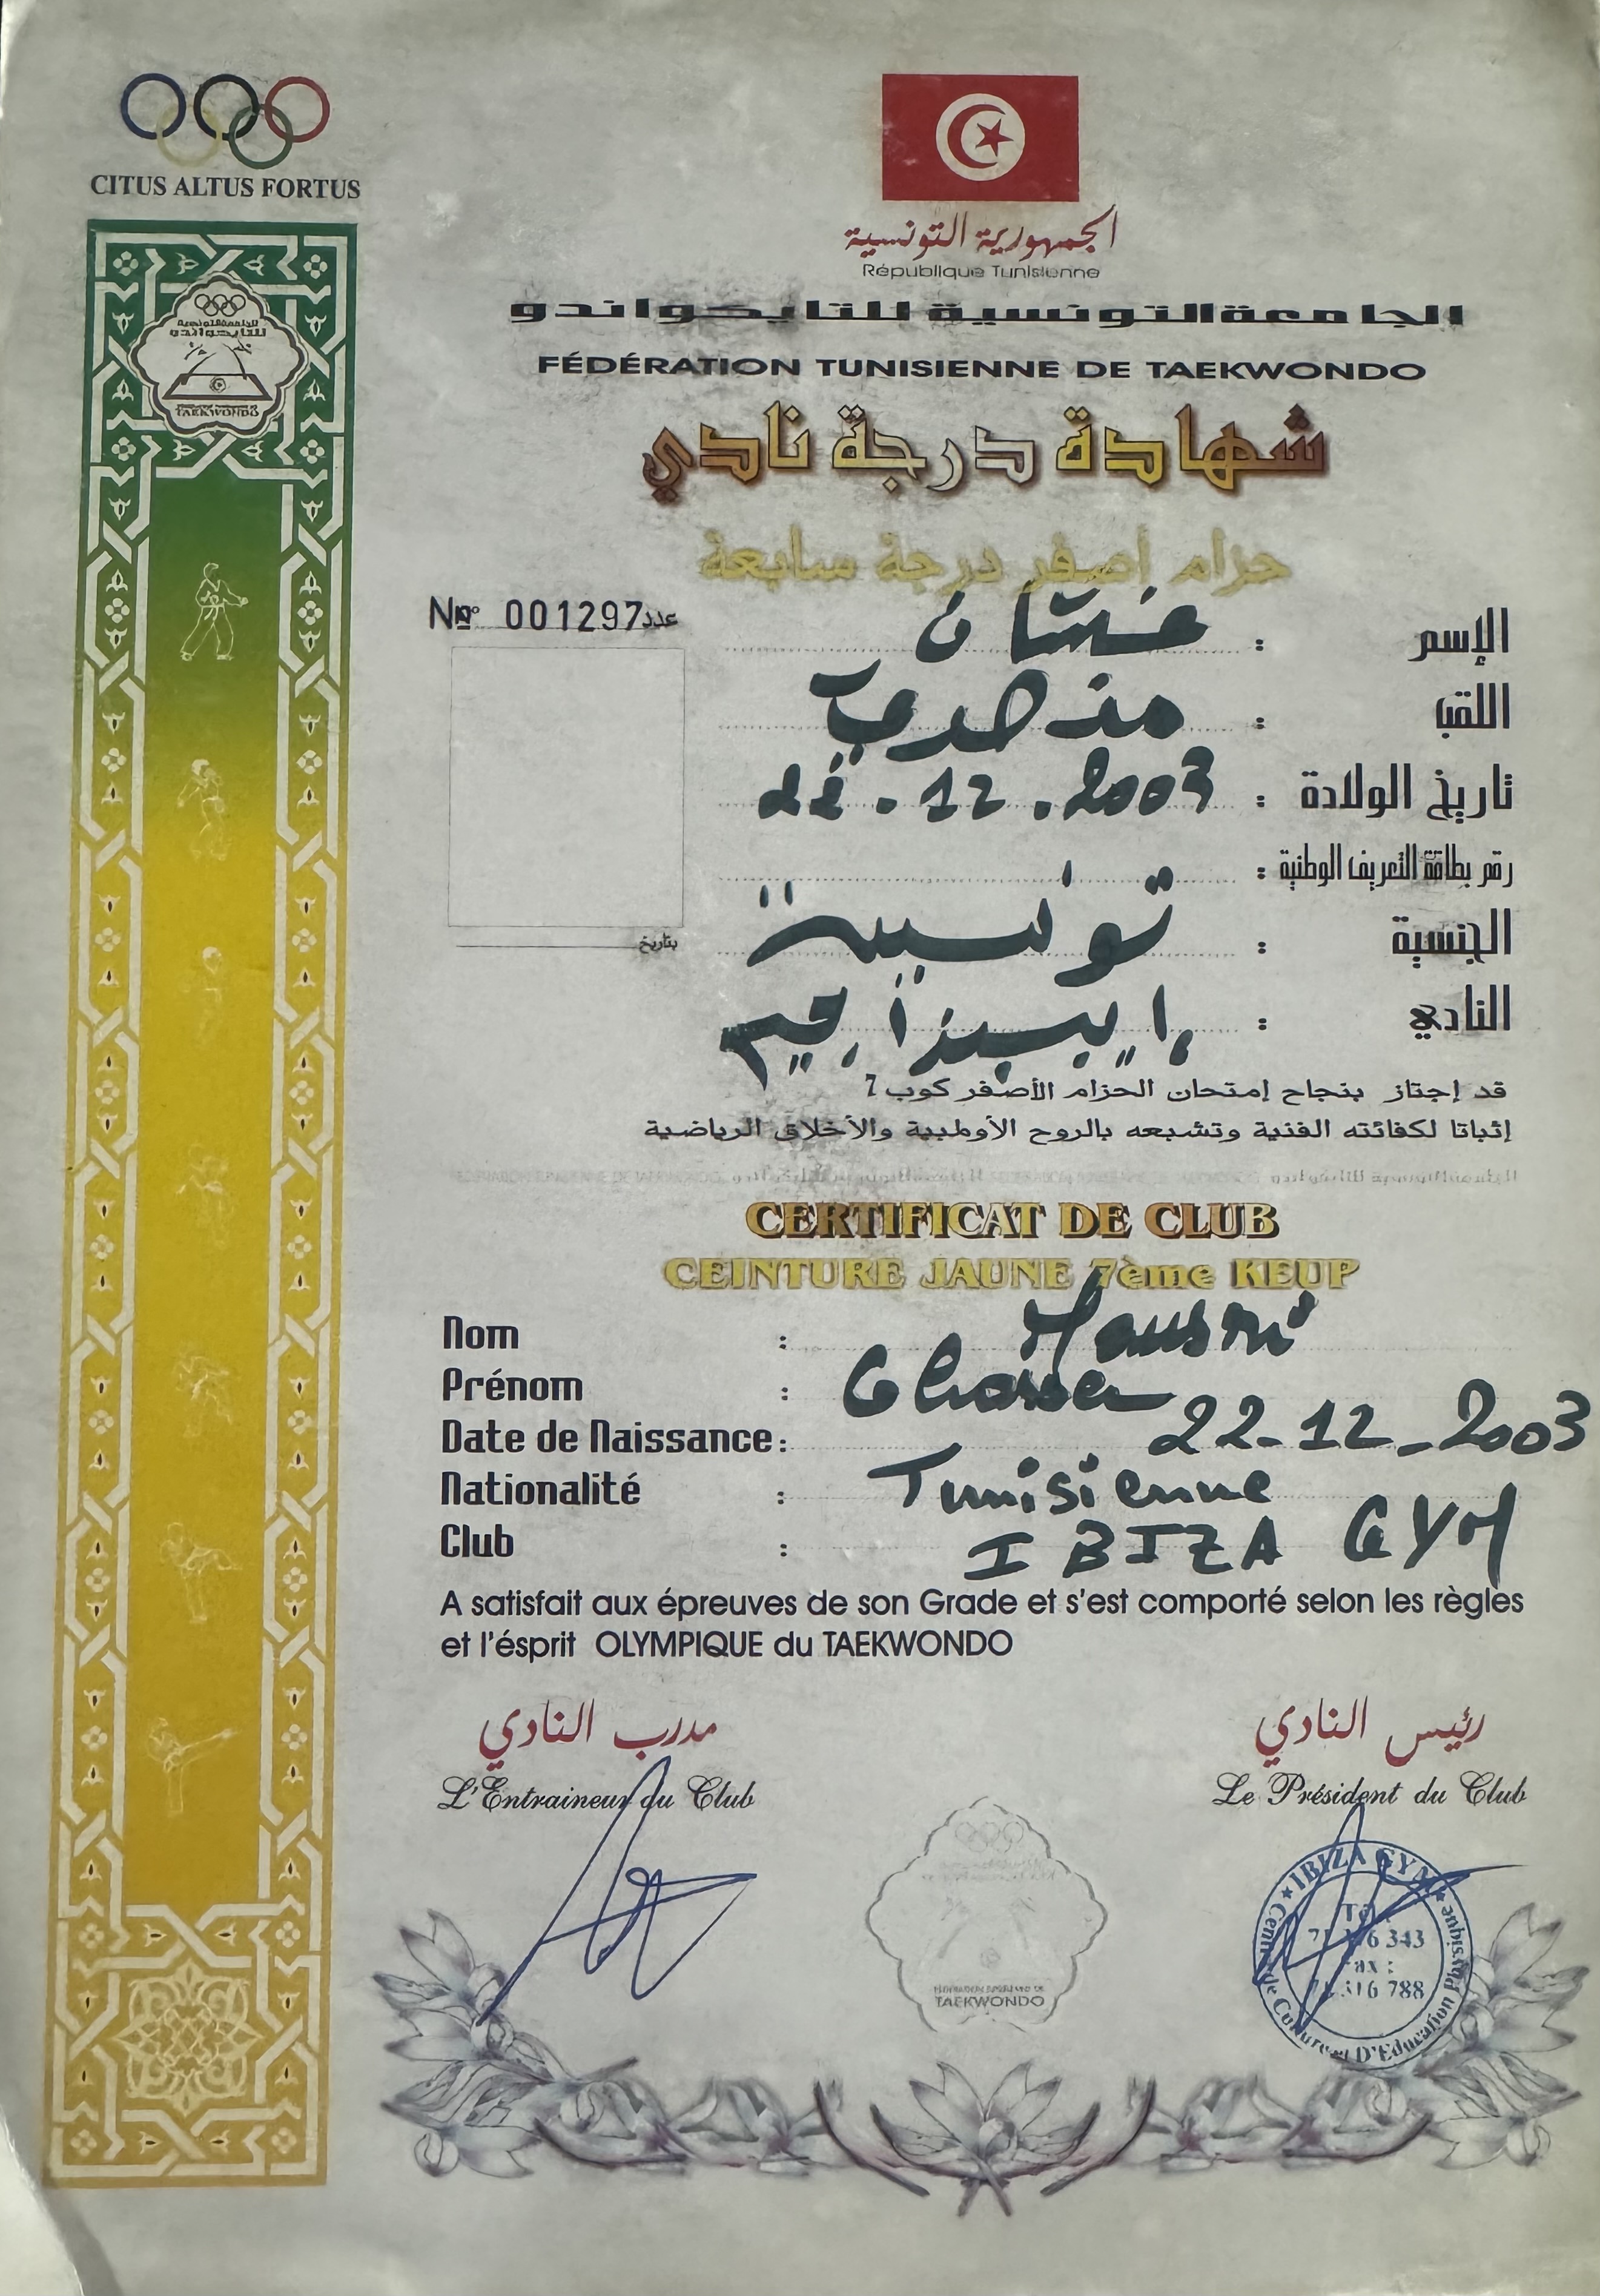 CITUS ALTUS FORTUS
الجمهورية التونسية
République Tunisienne
الجامعة التونسية للتايكواندو
FÉDÉRATION TUNISIENNE DE TAEKWONDO
شهادة درجة نادي
حزام أصفر درجة سابعة
TAEKWONDO
№ 001297 عدد
الإسم : غسان
اللقب :
تاريخ الولادة : 22.12.2003
رقم بطاقة التعريف الوطنية :
الجنسية : تونسية
بتاريخ
النادي : إيبيزا جيم
قد إجتاز بنجاح إمتحان الحزام الأصفر كوب 7
إثباتا لكفائته الفنية وتشبعه بالروح الأولمبية والأخلاق الرياضية
CERTIFICAT DE CLUB
CEINTURE JAUNE 7ème KEUP
Nom :
Prénom : Ghassen
Date de Naissance : 22-12-2003
Nationalité : Tunisienne
Club : IBIZA GYM
A satisfait aux épreuves de son Grade et s'est comporté selon les règles
et l'ésprit OLYMPIQUE du TAEKWONDO
مدرب النادي
L'Entraineur du Club
رئيس النادي
Le Président du Club
TAEKWONDO
IBIZA GYM
Centre de Culture et D'Education Physique
343
Fax :
788